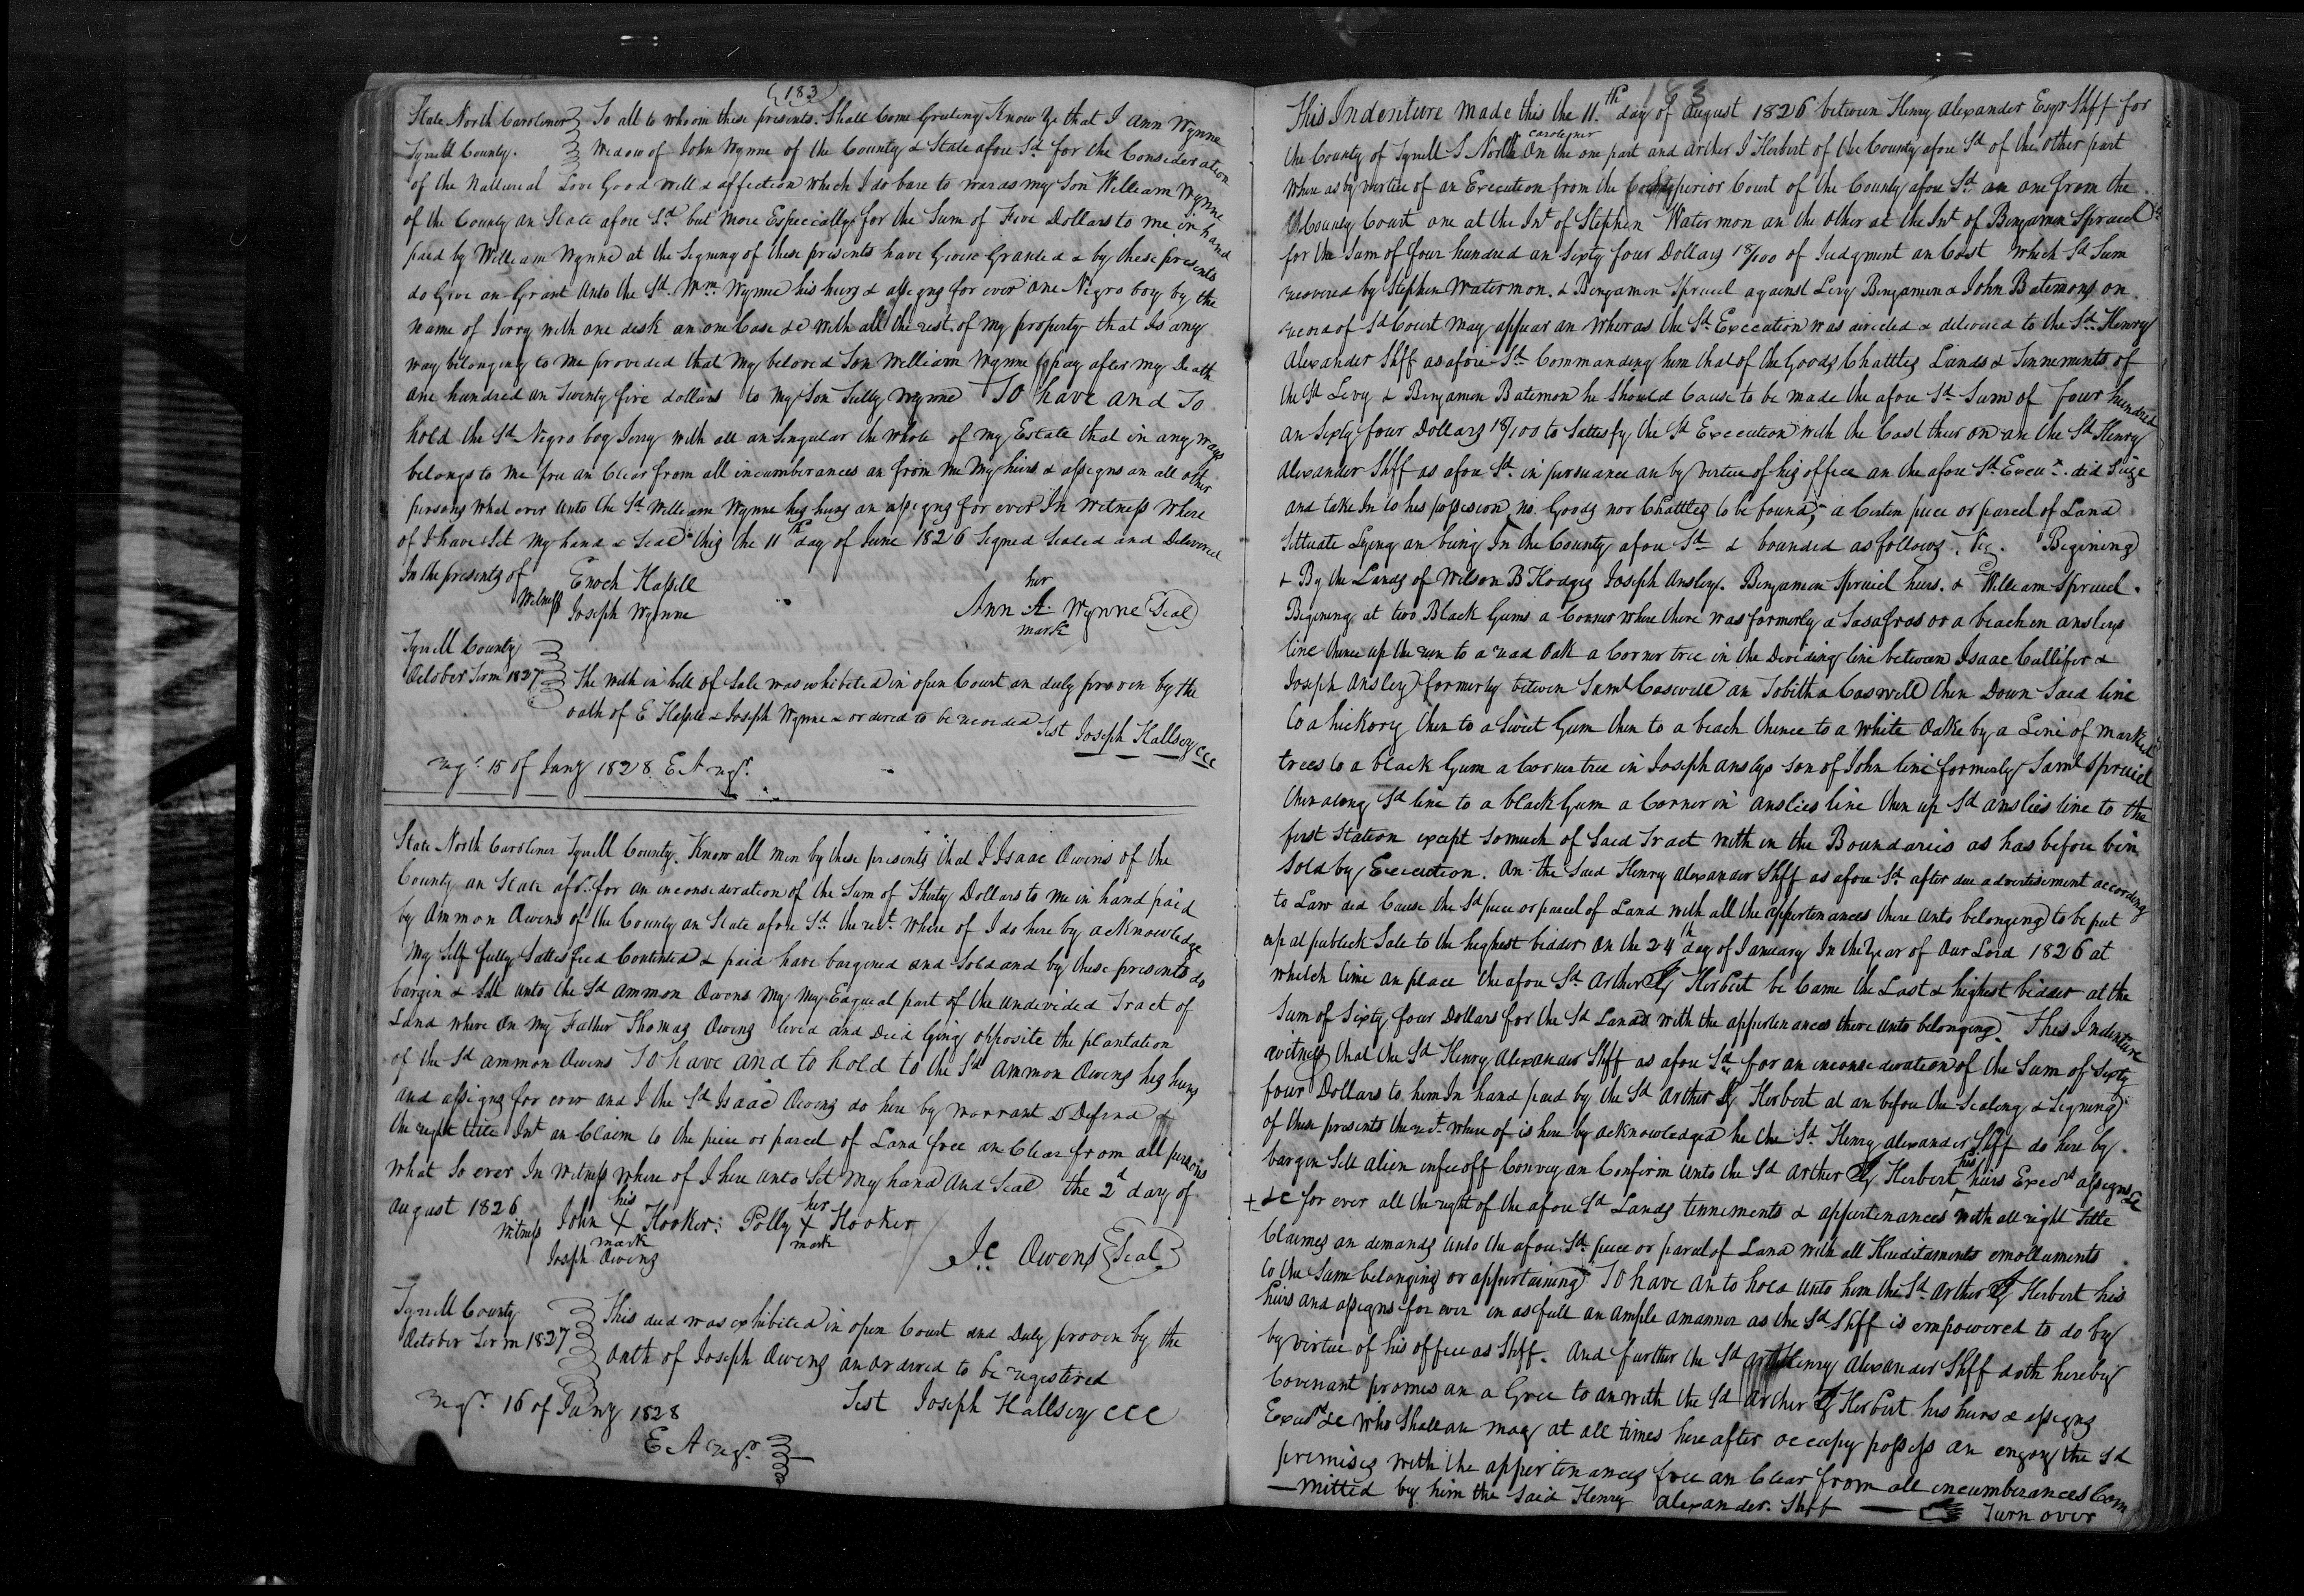 (183)
State North Caroliner To all to whom these presents Shall Come Greeting Know Ye that I Ann Wynne
Tyrrell County. Wedow of John Wynne of the County & State afore Sd for the Consideration
of the Natturial Love Good will & affection which I do bare to wards my Son William Wynne
of the County an State afore Sd but More Especially for the Sum of Five Dollars to me in hand
paid by William Wynne at the Signing of these presents have Given Granted & by these presents
do Give an Grant unto the Sd Wm Wynne his heirs & assigns for ever one Negro boy by the
name of Jerry with one desk an one Case &c with all the rest of my property that Is any
way belonging to me provided that my beloved Son William Wynne pay after my Death
one hundred an Twenty five dollars to my Son Tully Wynne To have and To
hold the Sd Negro boy Jerry with all an Singular the whole of my Estate that in any ways
belongs to me free an Clear from all incumberances an from me my heirs & assigns an all other
persons what ever unto the Sd William Wynne his heirs an assigns for ever In Witness Where
of I have Set my hand & Seal this the 11th day of June 1826 Signed Sealed and Delivered
In the presents of Enoch Hassell her
Witness Joseph Wynne Ann A Wynne Seal
mark
Tyrrell County
October Term 1827 The with in bill of Sale was exhibited in open Court an duly proven by the
oath of E Hassell & Joseph Wynne & ordered to be recorded
Test Joseph Hallsey CCC
regr. 15 of Jany 1828 E A regr.
State North Caroliner Tyrrell County. Know all men by these presents that I Isaac Owens of the
County an State afsd. for an inconsideration of the Sum of Thirty Dollars to me in hand paid
by Ammon Owens of the County an State afore Sd the ret. where of I do here by acknowledge
My Self fully Sattesfied Contented & paid have bargened and Sold and by these presents do
bargin & Sell unto the Sd Ammon Owens my my Eaqueal part of the undivided Tract of
Land where on my Father Thomas Owens lived and Died lying opposite the plantation
of the Sd Ammon Owens To have and to hold to the Sd Ammon Owens his heirs
and assigns for ever and I the Sd Isaac Owens do here by warrant & Defend
the right title Int an Claim to the piece or parcel of Land free an Clear from all persons
what so ever In Witness where of I here unto Set my hand And Seal the 2d day of
August 1826 his her
Witness John X Hooker: Polly X Hooker
mark mark
Joseph Owens Jc Owens Seal
Tyrrell County
October Term 1827 This deed was exhibited in open Court and Duly proven by the
oath of Joseph Owens an ordered to be registered
regr. 16 of Jany 1828 Test Joseph Hallsey CCC
E A regr.
183
This Indenture made this the 11th day of August 1826 between Henry Alexander Esqr Shff for
the County of Tyrrell S North Caroliner On the one part and Arther J Herbert of the County afore Sd of the other part
Where as by vertue of an Execution from the Superior Court of the County afore Sd an one from the
County Court one at the Int of Stephen Watermon an the other at the Int of Bengamen Spruiel
for the Sum of four hundred an Sixty four Dollars 18/100 of Judgment an Cost which Sd Sum
recovered by Stephen Watermon & Bengamen Spruiel against Levy Bengamen & John Batemons on
record of Sd Court may appear an wheras the Sd Execution was directed & delivered to the Sd Henry
Alexander Shff as afore Sd Commanding him that of the Goods Chattles Lands & Tennements of
the Sd Levy & Bengamen Batemon he Should Cause to be made the afore Sd Sum of Four hundred
an Sixty four Dollars 18/100 to Sattesfy the Sd Execution with the Cost theire on an the Sd Henry
Alexander Shff as afore Sd in persuance an by vertue of his office an the afore Sd Execun. did Seize
and take In to his possesion no Goods nor Chattles to be found, a Certen piece or parcel of Land
Sittuate Lying an being In the County afore Sd & bounded as follows. Viz. Begining
& By the Lands of Wilson B Hodges Joseph Ansley. Bengamen Spruiel heirs. & William Spruiel.
Begining at two Black Gums a Corner where there was formerly a Sasafras or a beach en ansleys
line thence up the run to a read oak a Corner tree in the Deviding line between Isaac Cullifer &
Joseph Ansley formerly between Saml Caswell an Tobitha Caswell then Down Said line
to a hickory then to a Sweet Gum then to a beach thence to a White oake by a Line of Marked
trees to a black Gum a Corner tree in Joseph anslys Son of John line formerly Saml Spruiel
then along Sd line to a black Gum a Corner in anslies line then up Sd anslies line to the
first Station except So much of Said Tract with in the Boundaries as has before bin
Sold by Execution. An the Said Henry Alexander Shff as afore Sd after due advertisement according
to Law did Cause the Sd piece or parcel of Land with all the appertenances there unto belonging to be put
up at publeck Sale to the highest bidder on the 24th day of January In the Year of Our Lord 1826 at
whitch time an place the afore Sd Arther J Herbert be Came the Last & highest bidder at the
Sum of Sixty four Dollars for the Sd Lands with the appertenances there unto belonging. This Indenture
witness that the Sd Henry Alexander Shff as afore Sd for an inconsideration of the Sum of Sixty
four Dollars to him In hand paid by the Sd Arther J Herbert at an before the Sealing & Signing
of these presents the ret. where of is here by acknowledged he the Sd Henry Alexander Shff do here by
bargin Sell alien enfeeoff Convey an Confirm unto the Sd Arther J Herbert his heirs Execrs assigns
&c for ever all the right of the afore Sd Lands tennements & appertenances with all right title
Claimes an demands unto the afore Sd piece or parcel of Land with all Herediturments emolluments
to the Same belonging or appertaining To have an to hold unto him the Sd Arther J Herbert his
heirs and assigns for ever in as full an ample a manner as the Sd Shff is empowered to do by
by virtue of his office as Shff. And further the Sd Henry Alexander Shff doth hereby
Covenant promes an a Gree to an with the Sd Arther J Herbert his heirs & assigns
Execrs &c who Shall an may at all times here after occupy possess an engoy the Sd
premises with the appertenances free an Clear from all incumberances Com
—mitted by him the Said Henry Alexander. Shff — Turn over